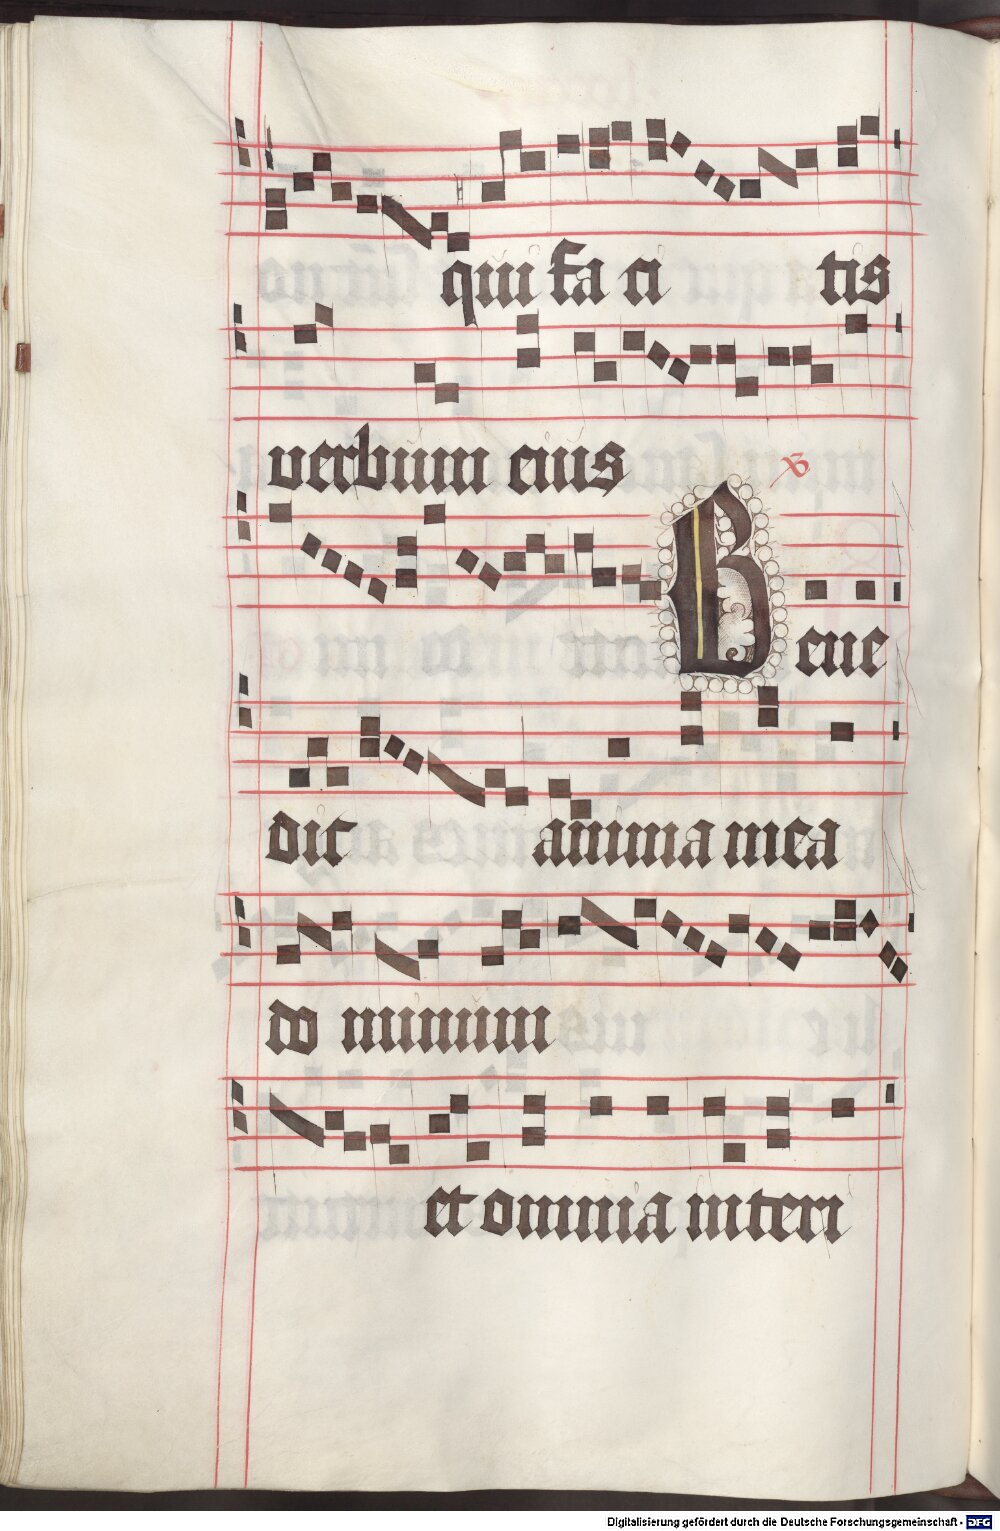 qui fa ci tis
verbum eius
℣
Bene
dic anima mea
do minum
et omnia interi
Digitalisierung gefördert durch die Deutsche Forschungsgemeinschaft - DFG